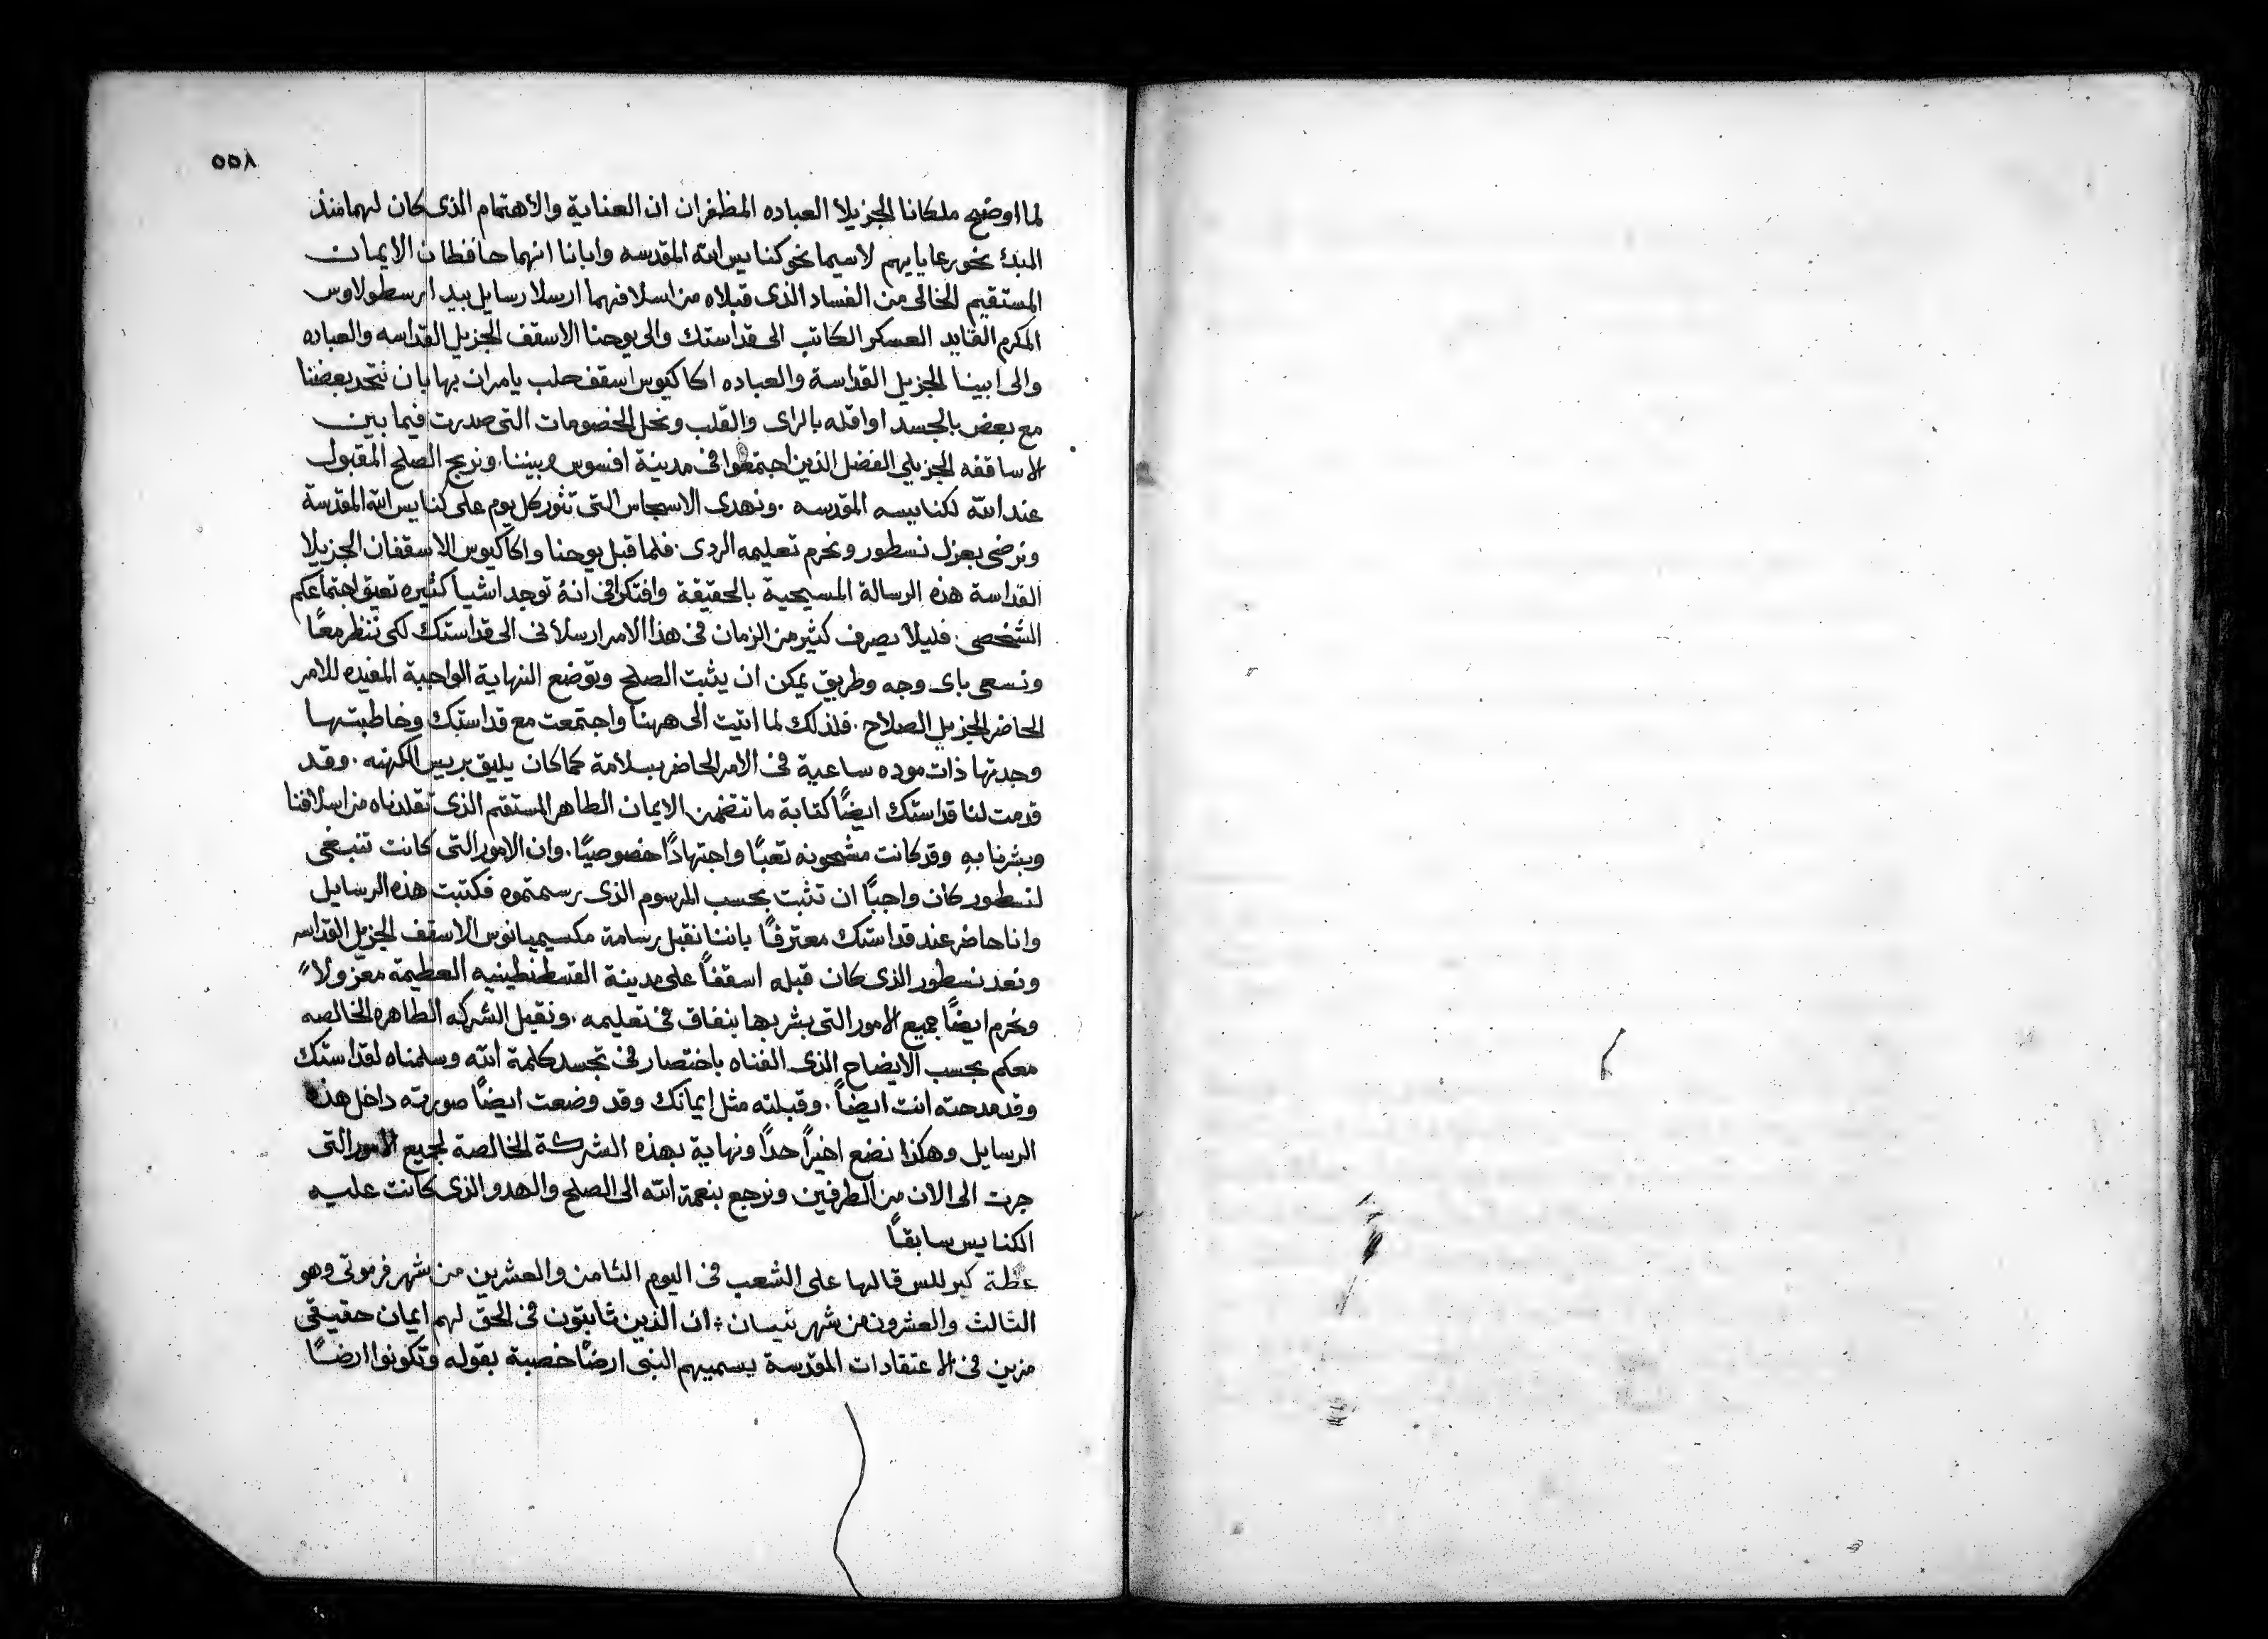 ٥٥٨
لما اوضح ملكانا الجزيلا العباده المظفران ان العناية والاهتمام الذى كان لهما منذ
البدء نحو رعاياهم لاسيما نحو كنايس الله المقدسه وابانا انهما حافظان الايمان
المستقيم الخالى من الفساد الذى قبلاه من اسلافهما ارسلا رسايل بيد ارسطولاوس
المكرم القايد العسكر الكاتب الى قداستك والى يوحنا الاسقف الجزيل القداسه والعباده
والى ابينا الجزيل القداسة والعباده اكاكيوس اسقف حلب يامران بها بان نتحد بعضنا
مع بعض بالجسد او اقله بالراى والقلب ونحل الخصومات التى صدرت فيما بين
الاساقفه الجزيلى الفضل الذين اجتمعوا فى مدينة افسوس وبيننا. ونربح الصلح المقبول
عند الله لكنايسه المقدسه. ونهدى الاسجاس التى تثور كل يوم على كنايس الله المقدسة
ونرضى بعزل نسطور ونحرم تعليمه الردى. فلما قبل يوحنا واكاكيوس الاسقفان الجزيلا
القداسة هذه الرسالة المسيحية بالحقيقة وافتكرا فى انه توجد اشيا كثيره تعيق اجتماعكم
الشخصى. فليلا يصرف كثير من الزمان فى هذا الامر ارسلانى الى قداستك لكى ننظر معًا
ونسعى باى وجه وطريق يمكن ان يثبت الصلح وتوضع النهاية الواجبة المفيده للامر
الحاضر الجزيل الصلاح. فلذلك لما اتيت الى ههنا واجتمعت مع قداستك وخاطبتها
وجدتها ذات موده ساعية فى الامر الحاضر بسلامة كما كان يليق بريس الكهنه. وقد
قدمت لنا قداستك ايضًا كتابة ما تتضمن الايمان الطاهر المستقيم الذى تقلدناه من اسلافنا
وبشرنا به وقد كانت مشحونه تعبًا واجتهادًا خصوصيًا. وان الامور التى كانت تنبغى
لنسطور كان واجبًا ان تثبت بحسب المرسوم الذى رسمتموه فكتبت هذه الرسايل
وانا حاضر عند قداستك معترفًا باننا نقبل رسامة مكسيميانوس الاسقف الجزيل القداسه
ونعد نسطور الذى كان قبله اسقفًا على مدينة القسطنطينيه العظيمة معزولاً
ونحرم ايضًا جميع الامور التى بشر بها بنفاق فى تعليمه. ونقبل الشركه الطاهره الخالصه
معكم بحسب الايضاح الذى الفناه باختصار فى تجسد كلمة الله وسلمناه لقداستك
وقد مدحته انت ايضاً. وقبلته مثل ايمانك وقد وضعت ايضًا صورته داخل هذه
الرسايل وهكذا نضع اخيراً حدًا ونهاية بهذه الشركة الخالصة لجميع الامور التى
جرت الى الان من الطرفين ونرجع بنعمة الله الى الصلح والهدو الذى كانت عليه
الكنايس سابقًا
عظة كيرللس قالها على الشعب فى اليوم الثامن والعشرين من شهر فرموتى وهو
الثالث والعشرون من شهر نيسان: ان الذين ثابتون فى الحق لهم ايمان حقيقى
مزين فى الاعتقادات المقدسة يسميهم النبى ارضًا خصبة بقوله وتكونوا ارضًا